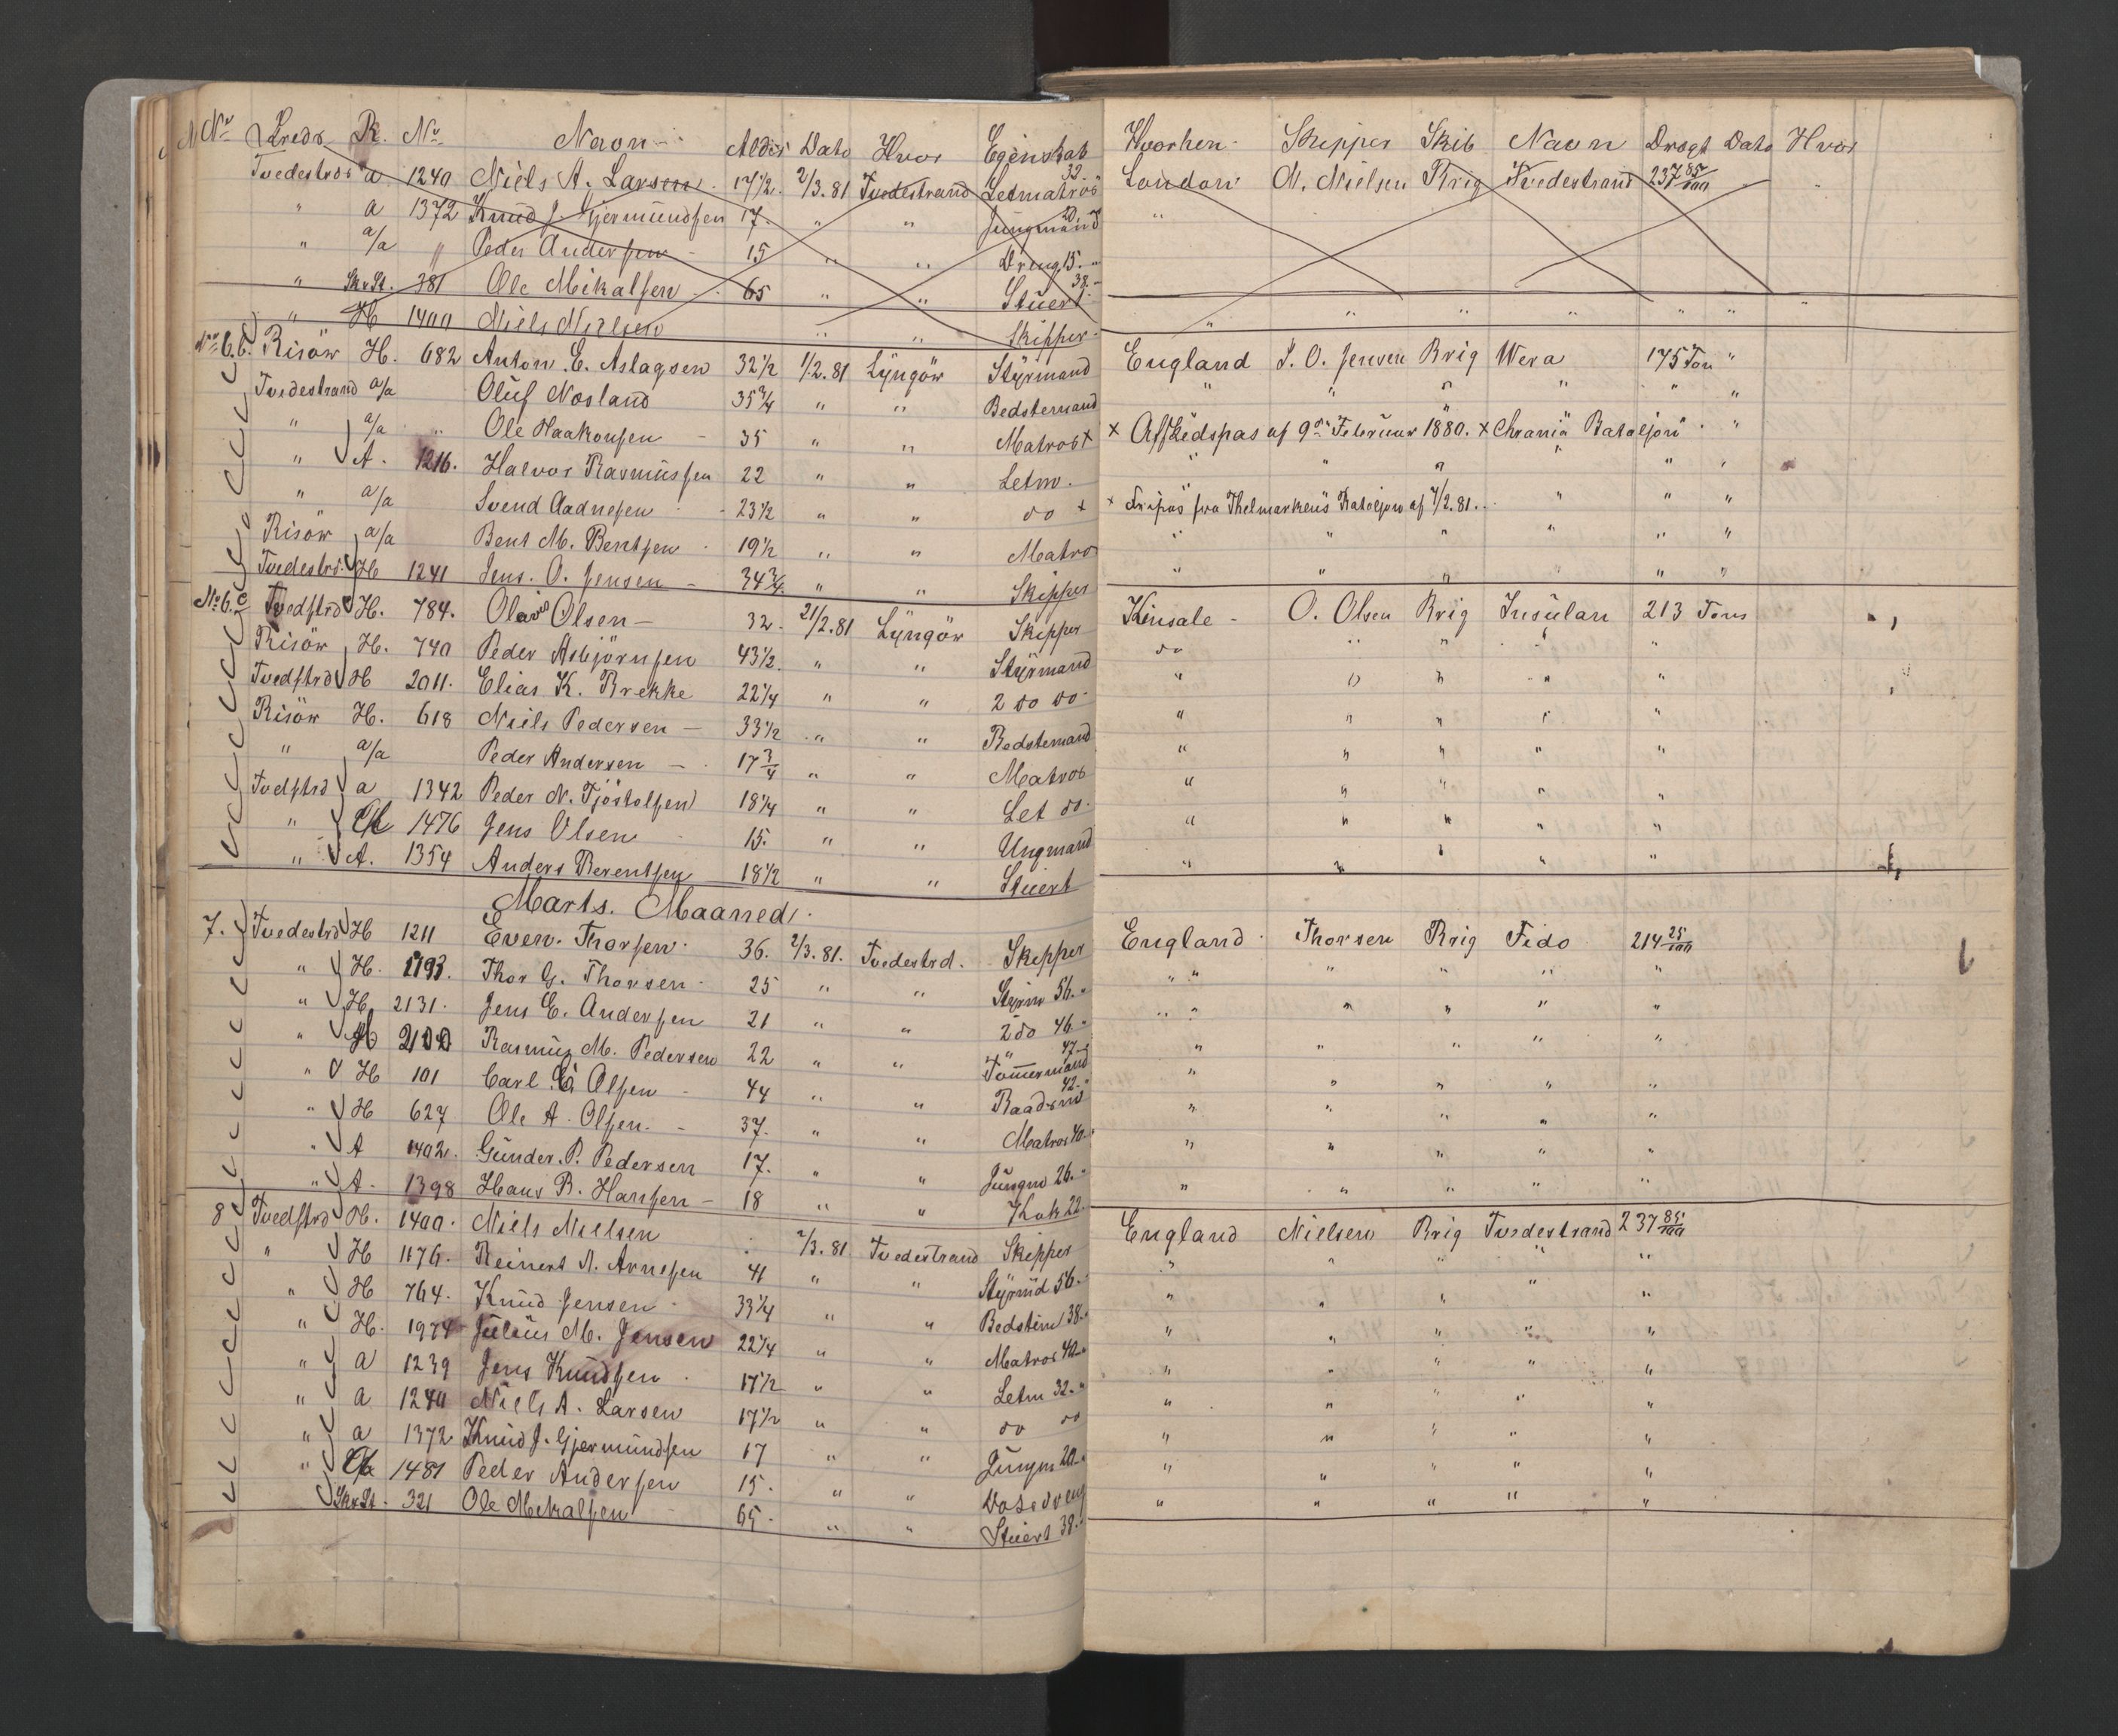 No Kreds R. No Navn Alder Dato Hvor Egenskab Hvorhen Skipper Skib Navn Drægt Dato Hvor
Tvedestrd a 1240 Niels A. Larsen 17 1/2 2/3.81 Tvedestrand Letmatros 32 London N. Nielsen Brig Tvedestrand 237 85/100
" a 1372 Knud J. Gjermundsen 17 " " Jungmand 20 "
" a/a " Peder Andersen 15 " " Dreng 15.
" Sk.St. 381 Ole Mikalsen 65 " " Stuert 38
" H 1400 Niels Nielsen " " Skipper " " " " " "
No 6.b. Risör H. 682 Anton E. Aslagsen 32 1/2 1/2.81 Lyngör Styrmand England J. O. Jensen Brig Wera 175 Ton "
Tvedestrand a/a Oluf Nosland 35 3/4 " " Bedstemand " " " " " "
" a/a " Ole Haakonsen 35 " " Matros x x Afskedspas af 9de Februar 1880. x Chrania Bataljon "
" A. 1216. Halvor Rasmussen 22 " " Letm. " " " " " "
" a/a Svend Aadnesen 23 1/2 " " do x x Fripas fra Thelmarkens Bataljon af 7/2.81. " " "
Risör a/a Bent M. Bentsen 19 1/2 " " Matros " " " " " "
Tvedestrd. H 1241 Jens. O. Jensen 34 3/4 " " Skipper " " " " "
No 6.c Tvedstrd H. 784. Olavs Olsen 32. 21/2.81 Lyngör Skipper Kinsale O. Olsen Brig Insulan 213 Tons
Risör H. 740 Peder Asbjörnsen 43 1/2 " " Styrmand do " " " "
Tvedstrd H 2011. Elias K. Brekke 22 1/4 " " 2 do do " " " " "
Risör H. 618 Niels Pedersen 33 1/2 " " Bedstemand " " " " "
" a/a Peder Andersen 17 3/4 " " Matros " " " " "
Tvedstrd a 1342 Peder N. Tjöstolsen 18 1/4 " " Let do. " " " " "
" 1476 Jens Olsen 15. " " Ungmand " " " " "
" A. 1354 Anders Berentsen 18 1/2 " " Stuert " " " " "
Marts. Maaned.
7. Tvedestrd H 1211 Even. Thorsen 36. 2/3.81. Tvedestrd. Skipper England Thorsen Brig Fido 214 25/100
" H. 1193. Thor G. Thorsen 25 " " Styrm 56. " " " " "
" H. 2131. Jens E. Andersen 21 " " 2 do 46. " " " " "
" H 2100 Rasmus M. Pedersen 22 " " Tömmermand 47 " " " " "
" H 101 Carl Olsen 44 " " Raadsm 42. " " " " "
" H 627 Ole A. Olsen. 37. " " Matros 40. " " " " "
" A 1402. Gunder. P. Pedersen 17. " " Jungm 26. " " " " "
" A. 1398 Hans B. Hansen 18 " " Kok 22. " " " " "
8 Tvedstrd H. 1400. Niels Nielsen 2/3.81 Tvedestrand Skipper England Nielsen Brig Tvedestrand 237 85/100
" H 1176. Reinert N. Arnesen 41 " " Styrmd 56. " " " " "
" H 764. Knud Jensen 33 1/4 " " Bedstem 38. " " " " "
" H. 1974 Julius M. Jensen 22 1/4 " " Matros 40 " " " " "
" a 1239 Jens Knudsen 17 1/2 " " Letm 32. " " " " "
" a 1240 Niels A. Larsen 17 1/2 " " do do " " " " "
" a 1372 Knud J. Gjermundsen 17 " " Jungm 20 " " " " "
" 1481 Peder Andersen 15. " " " " " " "
Sk.St. 321 Ole Mekalsen 65. " " Stuert 38. " " " " "